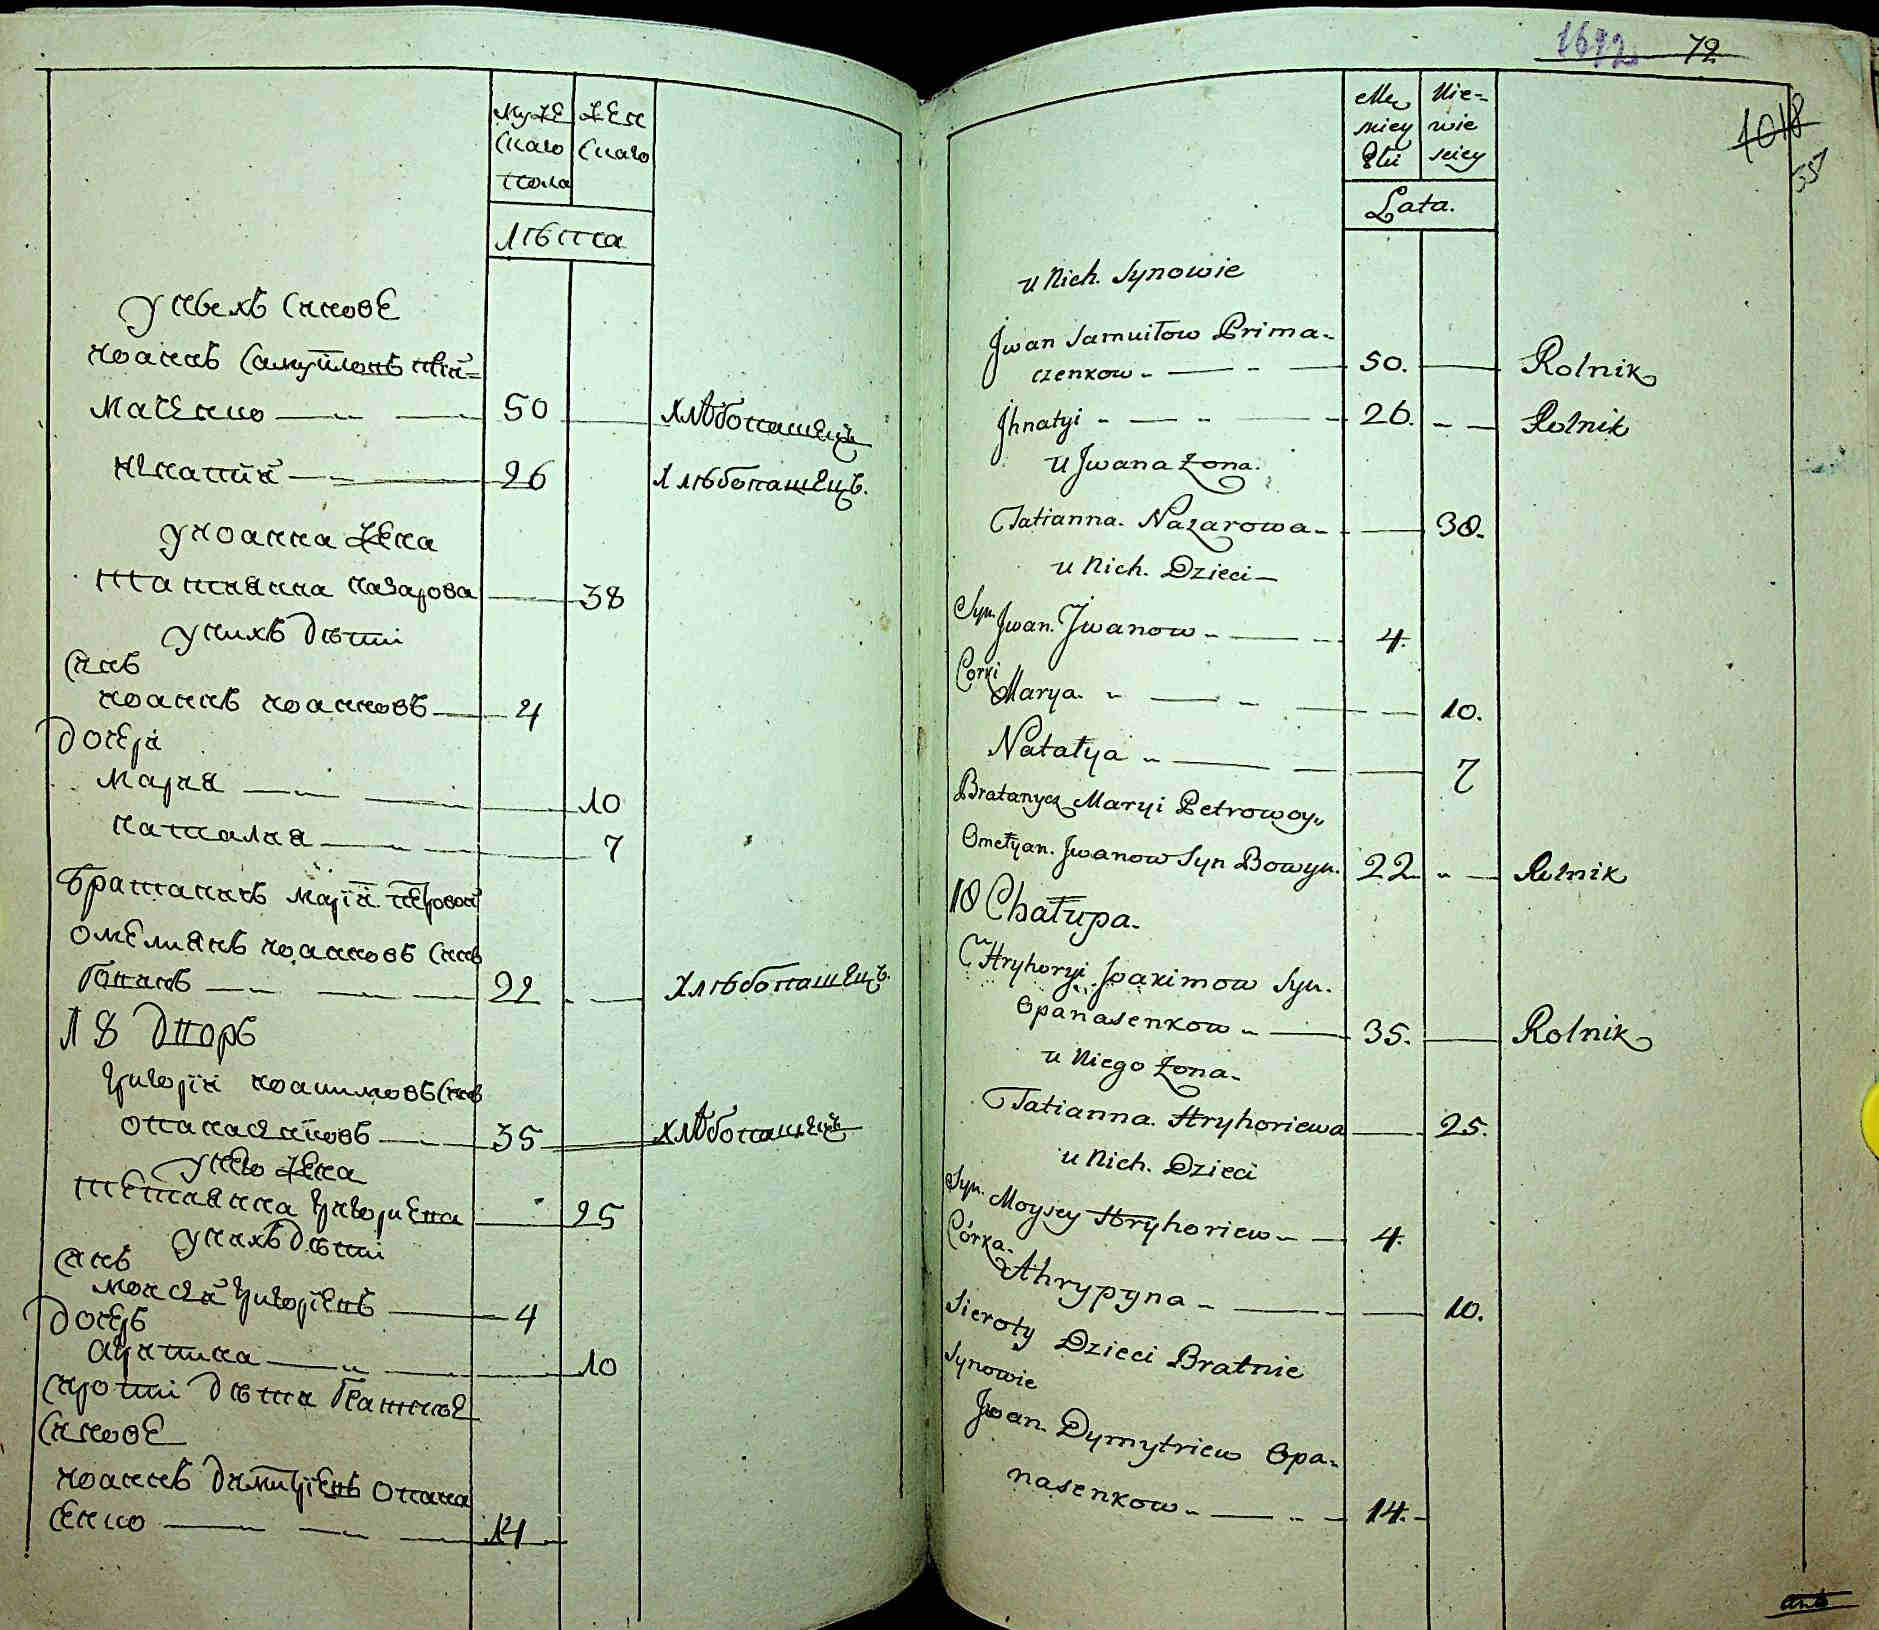 мужескаго пола
женскаго
лѣта
у нѣхъ сынове
иоаннъ самуйловъ прий=
маченко 50 хлѣбопашецъ
игнатий 26 хлѣбопашецъ.
у иоанна жена
татианна назарова 38
у нихъ дѣти
сынъ
иоаннъ иоанновъ 4
дочери
мария 10
наталия 7
братаничъ марїи петровой
омелиянъ иоанновъ сынъ
22 хлѣбопашецъ.
18 дворъ
григорїй иоакимовъ сынъ
опанасенковъ 35 хлѣбопашецъ
у него жена
татианна григориева 25
у нихъ дѣти
сынъ
моисей григорїевъ 4
дочерь
10
сироти дѣти братние
синове
иоаннъ димитрїевъ опана
сенко 14
1692 72
1018
55
Mę skiey Płci
Nie= wie sciey
Lata.
u Nich. Synowie
Jwan Samuiłow Prima-
czenkow 50. Rolnik
Jhnatyi 26. Rolnik
u Jwana Żona.
Tatianna. Nazarowa 38.
u Nich. Dzieci
Syn. Jwan. Jwanow 4.
Corki
Marya. 10.
Natałya 7
Bratanycz Maryi Petrowoy
Omełyan. Jwanow Syn Bowyn. 22 Rolnik
18 Chałupa.
Hryhoryi Joakimow Syn.
Opanasenkow 35. Rolnik
u Niego Żona
Tatianna. Hryhoriewa 25.
u Nich. Dzieci
Syn. Moysey Hryhoriew 4.
Córka.
Ahrypyna 10.
Sieroty Dzieci Bratnie
Synowie
Jwan. Dymytriew Opa-
nasenkow 14.